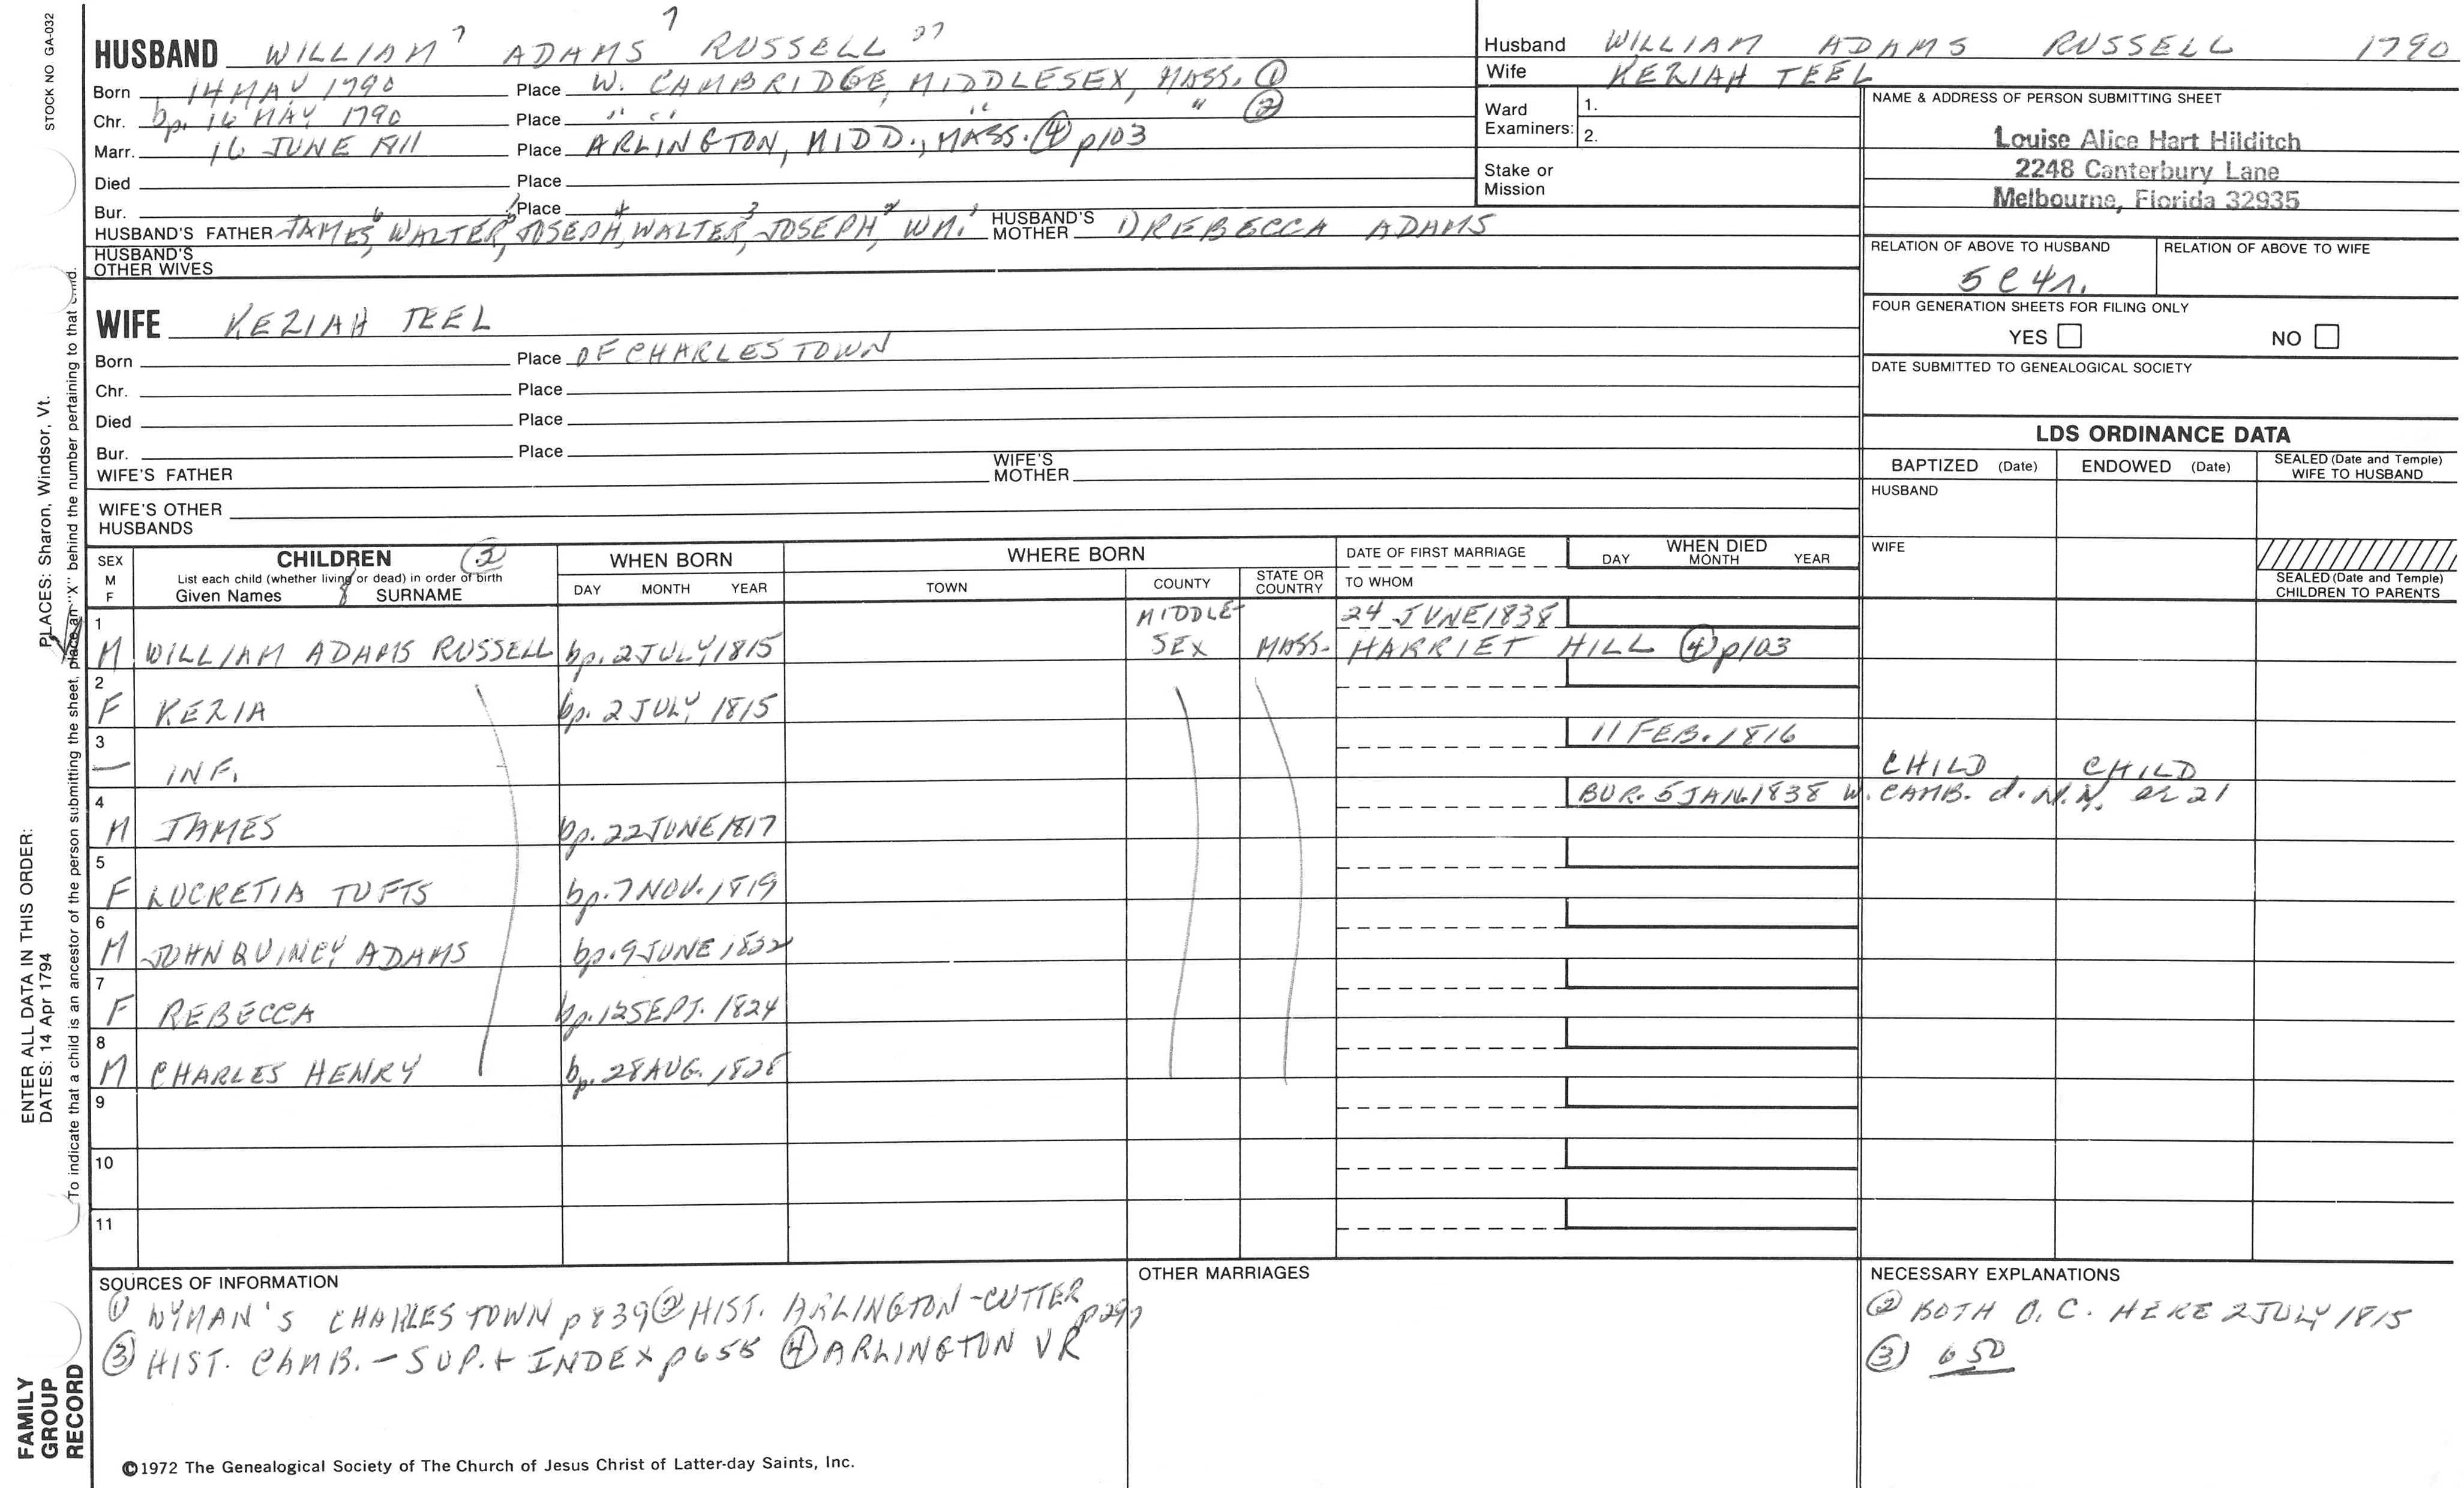 STOCK NO GA-032
HUSBAND WILLIAM 7 ADAMS 7 RUSSELL
Born 14 MAY 1790 Place W. CAMBRIDGE, MIDDLESEX, MASS. ①
Chr. bp. 16 MAY 1790 Place " " " " ②
Marr. 16 JUNE 1811 Place ARLINGTON, MIDD., MASS. ④ p103
Died Place
Bur. Place
HUSBAND'S FATHER JAMES 6, WALTER 5, JOSEPH 4, WALTER 3, JOSEPH 2, WM. 1 HUSBAND'S MOTHER 1) REBECCA ADAMS
HUSBAND'S OTHER WIVES
Husband WILLIAM ADAMS RUSSELL 1790
Wife KEZIAH TEEL
Ward Examiners: 1.
2.
Stake or Mission
NAME & ADDRESS OF PERSON SUBMITTING SHEET
Louise Alice Hart Hilditch
2248 Canterbury Lane
Melbourne, Florida 32935
RELATION OF ABOVE TO HUSBAND RELATION OF ABOVE TO WIFE
5 C 4 r.
FOUR GENERATION SHEETS FOR FILING ONLY
YES NO
DATE SUBMITTED TO GENEALOGICAL SOCIETY
WIFE KEZIAH TEEL
Born Place OF CHARLESTOWN
Chr. Place
Died Place
Bur. Place
WIFE'S FATHER WIFE'S MOTHER
WIFE'S OTHER HUSBANDS
LDS ORDINANCE DATA
BAPTIZED (Date) ENDOWED (Date) SEALED (Date and Temple) WIFE TO HUSBAND
HUSBAND
WIFE
SEALED (Date and Temple) CHILDREN TO PARENTS
SEX M F CHILDREN
List each child (whether living or dead) in order of birth
Given Names 8 SURNAME
WHEN BORN
DAY MONTH YEAR
WHERE BORN
TOWN COUNTY STATE OR COUNTRY
DATE OF FIRST MARRIAGE
TO WHOM
WHEN DIED
DAY MONTH YEAR
1 MIDDLE- 24 JUNE 1838
M WILLIAM ADAMS RUSSELL bp. 2 JULY 1815 SEX MASS. HARRIET HILL ④ p103
2
F KEZIA bp. 2 JULY 1815
3 11 FEB. 1816
— INF. CHILD CHILD
4 BUR. 5 JAN. 1838 W. CAMB. d. N.Y. ae 21
M JAMES bp. 22 JUNE 1817
5
F LUCRETIA TUFTS bp. 7 NOV. 1819
6
M JOHN QUINCY ADAMS bp. 9 JUNE 1832
7
F REBECCA bp. 12 SEPT. 1824
8
M CHARLES HENRY bp. 28 AUG. 1828
9
10
11
SOURCES OF INFORMATION
① WYMAN'S CHARLESTOWN p839 ② HIST. ARLINGTON - CUTTER p297
③ HIST. CAMB. - SUP. + INDEX p655 ④ ARLINGTON VR
OTHER MARRIAGES
NECESSARY EXPLANATIONS
② BOTH O. C. HERE 2 JULY 1815
③ 650
©1972 The Genealogical Society of The Church of Jesus Christ of Latter-day Saints, Inc.
FAMILY GROUP RECORD
ENTER ALL DATA IN THIS ORDER:
DATES: 14 Apr 1794
PLACES: Sharon, Windsor, Vt.
To indicate that a child is an ancestor of the person submitting the sheet, place an "X" behind the number pertaining to that child.